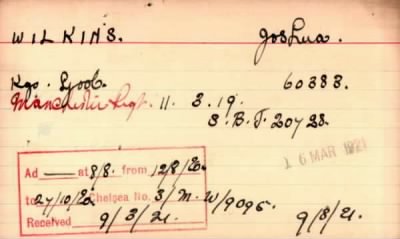 WILKINS. Joshua.
60383.
Manchester Regt. 11. 3. 19.
S. B. J. 20728.
16 MAR 1921
Ad — at 8/8. from 12/8/20.
to 27/10/20 Chelsea No. 3/M. W/9095.
Received 9/3/21. 9/3/21.